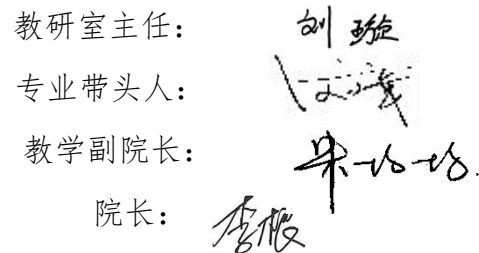 教研室主任： 刘璇
专业带头人：
教学副院长：
院长： 李根